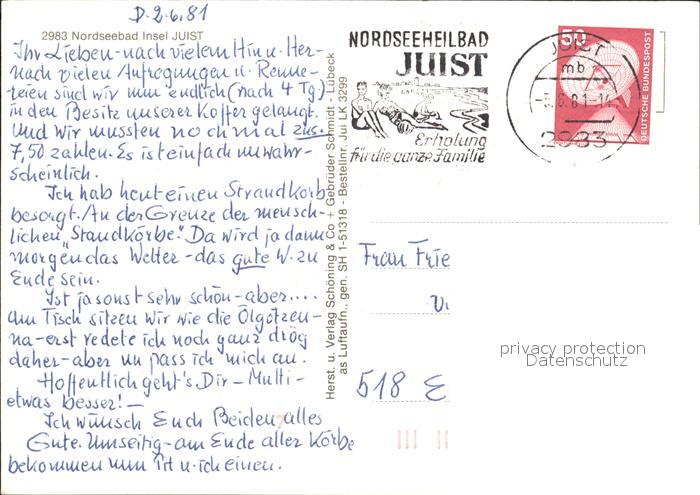 D. 2.6.81
2983 Nordseebad Insel JUIST
Ihr Lieben - nach vielem Hin u. Her -
nach vielen Aufregungen u. Renne-
reien sind wir nun endlich (nach 4 Tg.)
in den Besitz unserer Koffer gelangt.
Und wir mussten nochmal zus.
7,50 zahlen. Es ist einfach unwahr-
scheinlich.
Ich hab heut einen Strandkorb
besorgt. An der Grenze der mensch-
lichen "Standkörbe". Da wird ja dann
morgen das Wetter - das gute W. zu
Ende sein.
Ist ja sonst sehr schön - aber....
am Tisch sitzen wir wie die Ölgötzen -
na - erst redete ich noch ganz drög
daher - aber nu pass ich mich an.
Hoffentlich geht's Dir - Mutti -
etwas besser! -
Ich wünsch Euch Beiden alles
Gute. Umseitig - am Ende aller Körbe
bekommen nun u. ich einen.
Herst. u. Verlag Schöning & Co + Gebrüder Schmidt - Lübeck
als Luftaufn., gen. SH 1-51318 - Bestellnr. Jui LK 3299
NORDSEEHEILBAD
JUIST
Erholung
für die ganze Familie
JUIST
mb
2983
50
DEUTSCHE BUNDESPOST
Frau Frie
518 E
privacy protection
Datenschutz